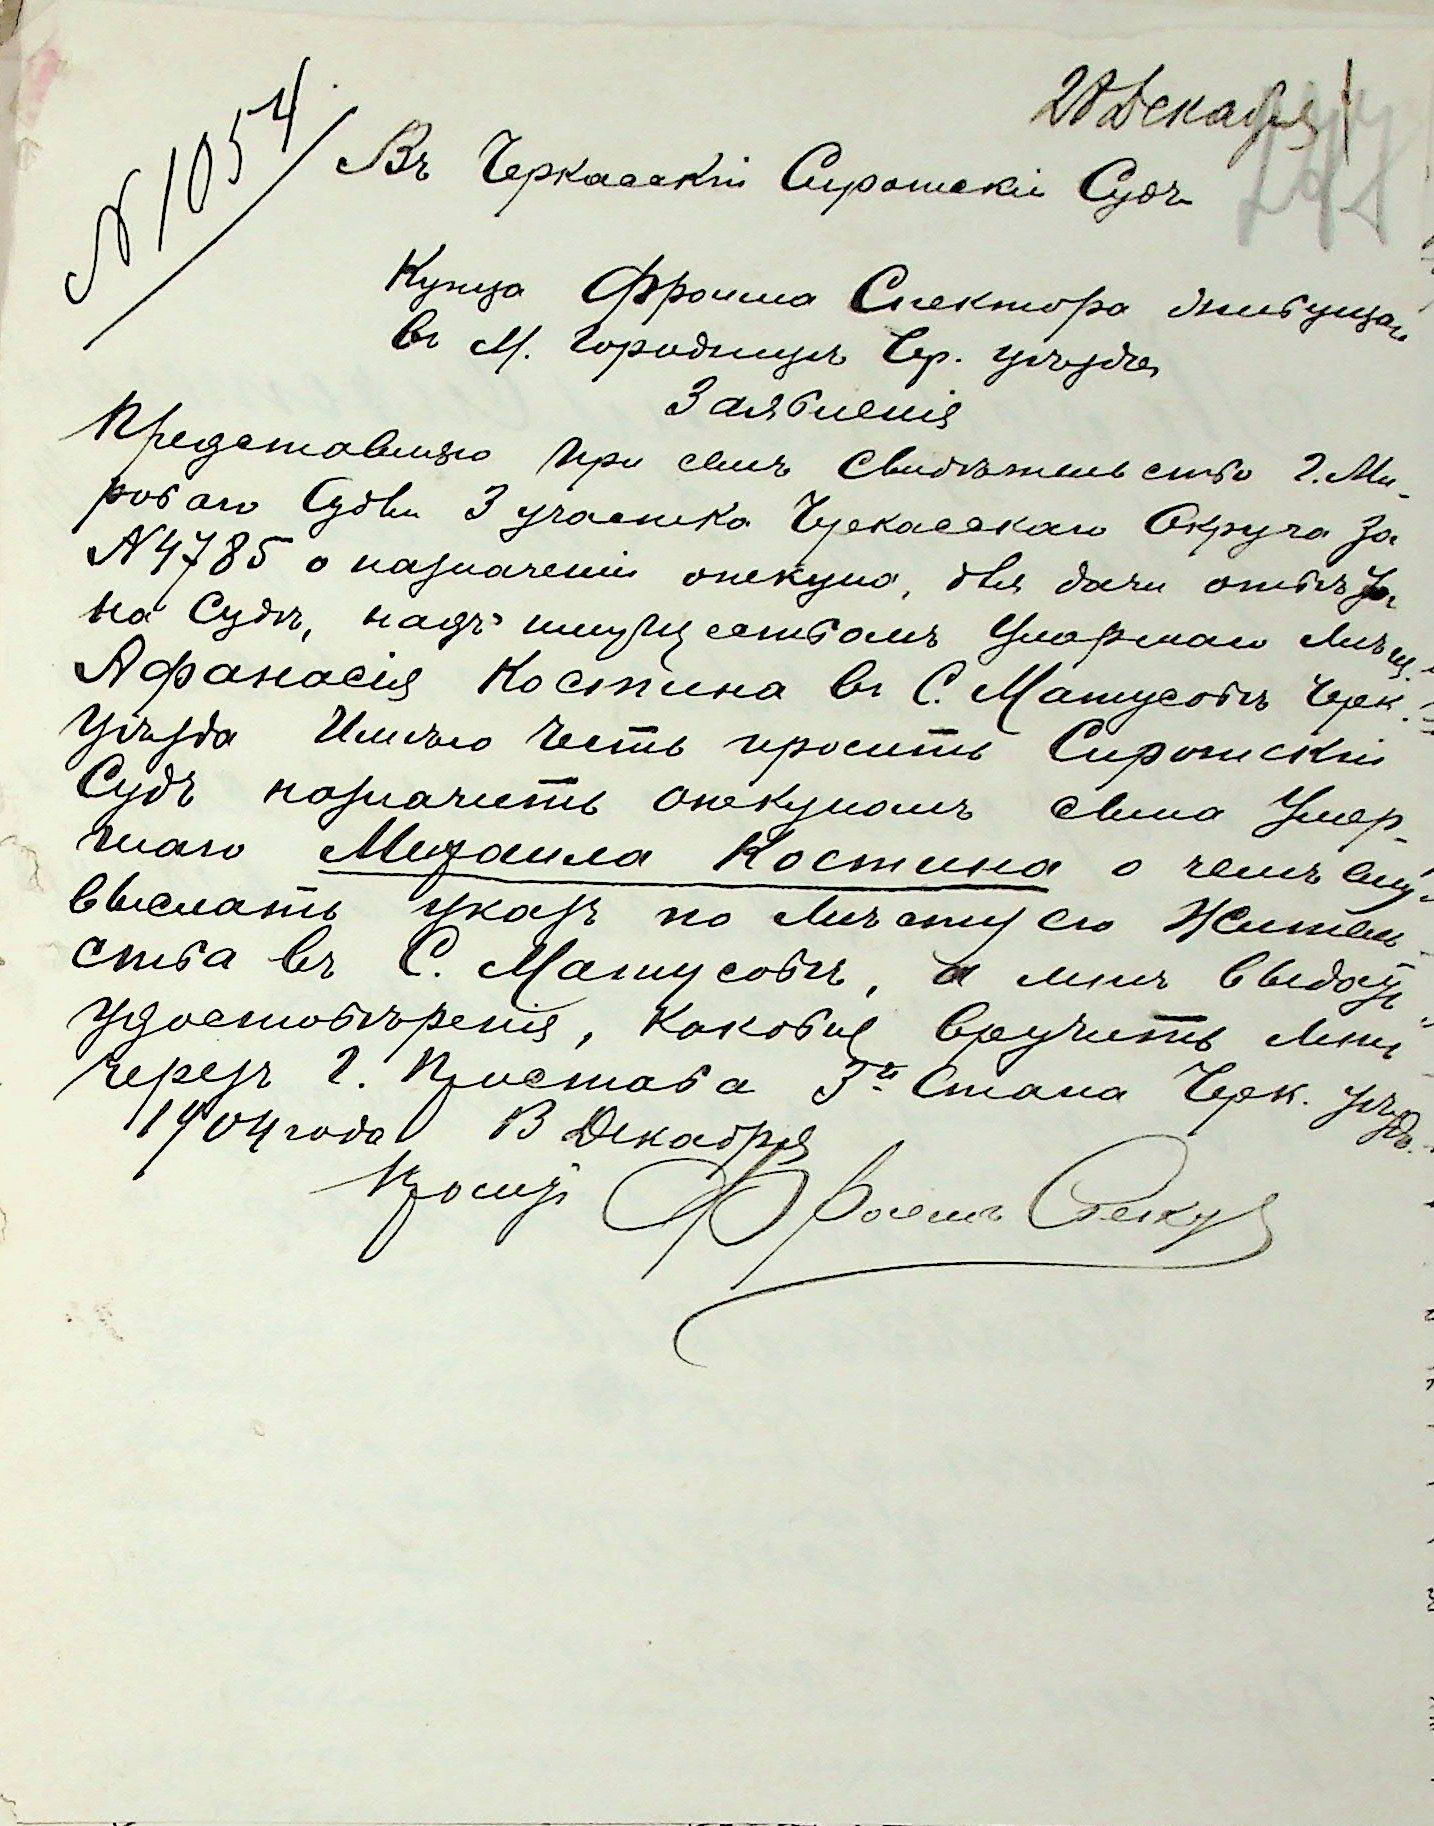 28 Декабря
№ 1054
Въ Черкасскій Сиротскій Судъ
Купца Фроима Спектора живущаго
въ М. Городищѣ Чер. уѣзда
Заявленія
Представляю при семъ свидѣтельство Г. Ми-
роваго Судьи 3 участка Черкасскаго Округа за
№ 4785 о назначеніи опекуна, для дачи отвѣта
на Судѣ, надъ имуществомъ умершаго Мѣщ.
Афанасія Костина въ С. Матусовѣ Черк.
уѣзда Имѣю честь просить Сиротскій
Судъ назначить опекуномъ сына Умер-
шаго Михаила Костина о чемъ ему
выслать указъ по мѣсту его Житель-
ства въ С. Матусовѣ, а мнѣ выдать
удостовѣренія, каковыя вручить мнѣ
черезъ Г. Пристава 3го Стана Черк. уѣзда.
1904 года 13 Декабря
Фроимъ Спекторъ